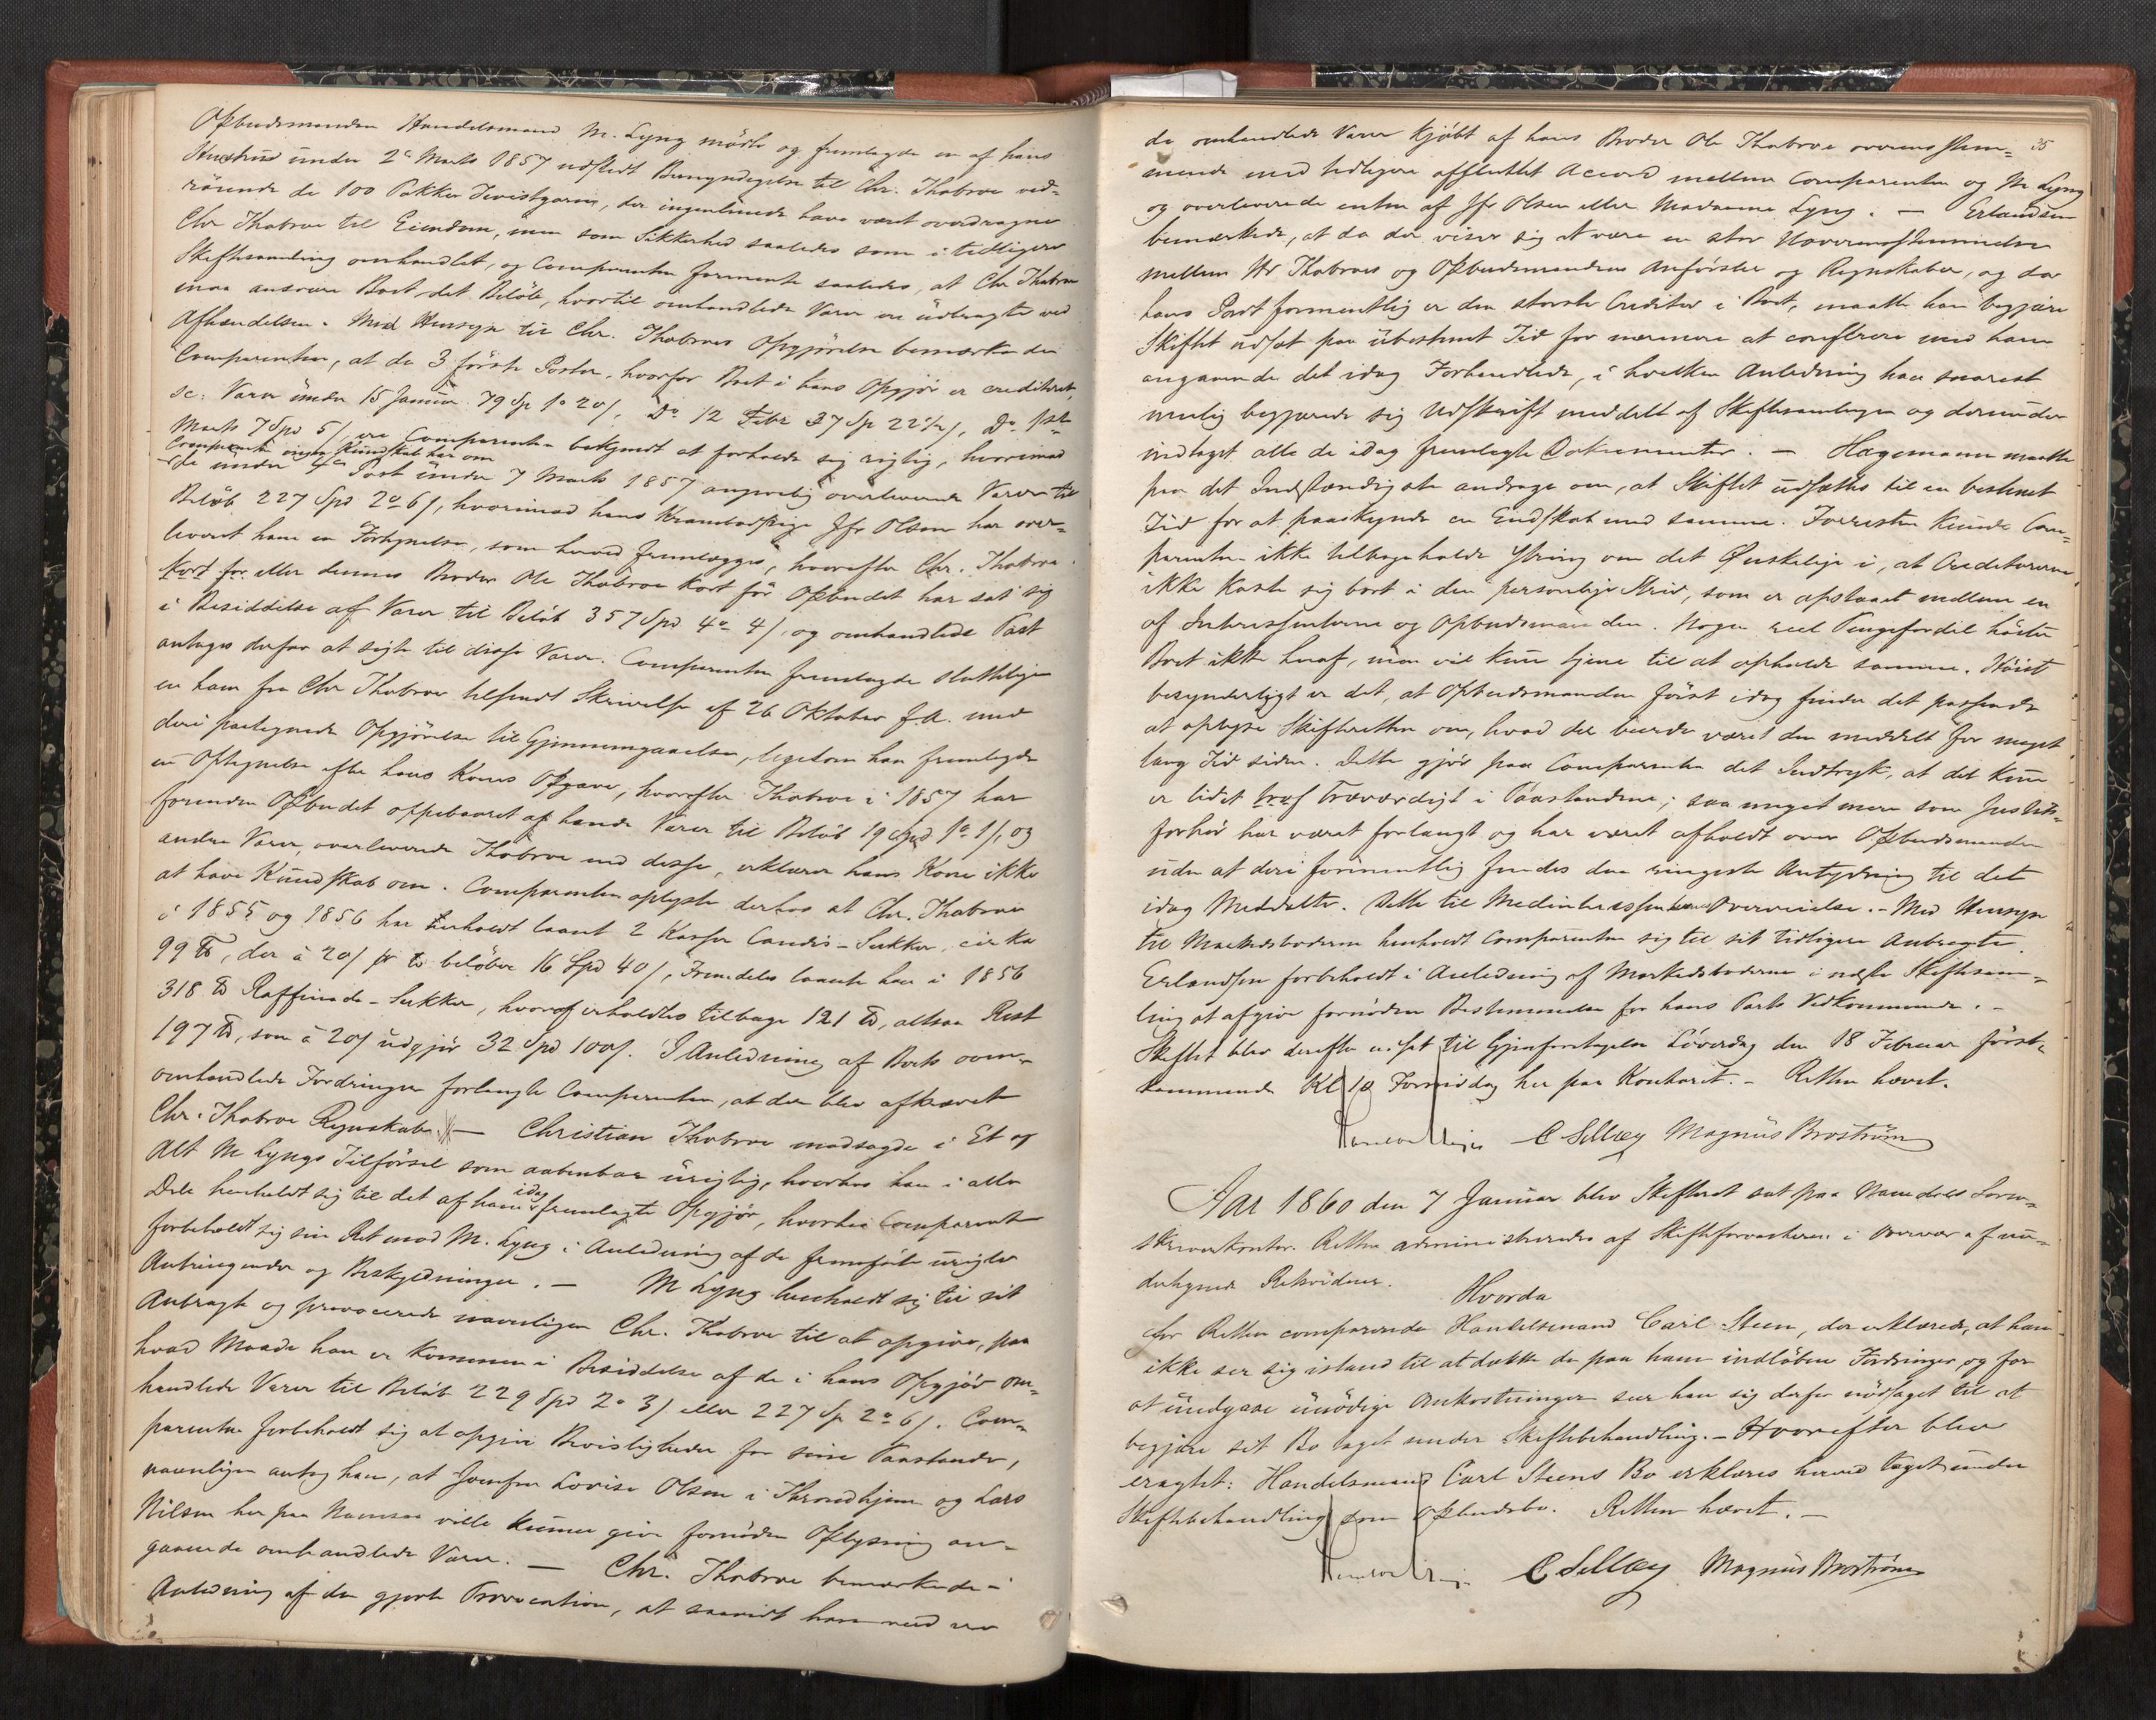 Opbudsmanden Handelsmand M. Lyng mødte og fremlagde en af hans
Hustrue under 2den Marts 1857 udstedt Bemyndigelse til Chr. Thobroe ved-
rørende de 100 Pakker Tvistgarn, der ingenlunde have været overdragne
Chr Thobroe til Eiendom, men som Sikkerhed saaledes som i tidligere
Skiftesamling omhandlet, og Comparenten formente saaledes, at Chr Thobroe
maa ansvare Boet det Beløb, hvortil omhandlede Varer ere udbragte ved
Afhændelsen. Med Hensyn til Chr. Thobroes Opgjørelse bemærkede
Comparenten, at de 3 første Poster, hvorfor Boet i hans Opgjør er crediteret,
sc: Varer under 15 Januar 79 Sp 1o 20/, Do 12 Febr 37 Sp 22½/, Do 1ste
Marts 7 Spd 5/, ere Comparenten bekjendt at forholde sig rigtig, hvorimod
Comparenten ingen Kundskab har om
de under 4de Post under 7 Marts 1857 angivelig overleverede Varer til
Beløb 227 Spd 2o 6/, hvorimod hans Krambodpige Jfr Olsen har over-
leveret ham en Fortegnelse, som herved fremlægges, hvorefter Chr. Thobroe
kort før eller dennes Broder Ole Thobroe kort før Opbudet har sat sig
i Besiddelse af Varer til Beløb 357 Spd 4o 4/, og omhandlede Post
antages derfor at sigte til disse Varer. Comparenten fremlagde sluttelig
en ham fra Chr Thobroe tilsendt Skrivelse af 26 Oktober f.A. med
deri paategnede Opgjørelse til Gjennemgaaelse, ligesom han fremlagde
en Optegnelse efter hans Kones Opgave, hvorefter Thobroe i 1857 har
forinden Opbudet oppebaaret af hende Varer til Beløb 19 Spd 1o 1/, og
andre Varer, overleverede Thobroe end disse, erklærer hans Kone ikke
at have Kundskab om. Comparenten oplyste derhos at Chr. Thobroe
i 1855 og 1856 har erholdt laant 2 Kasser Candis-Sukker, cirka
99 ℔, der à 20/ pr ℔ beløber 16 Spd 40/, Fremdeles laante han i 1856
318 ℔ Raffinade-Sukker, hvoraf erholdtes tilbage 121 ℔, altsaa Rest
197 ℔, som à 20/ udgjør 32 Spd 100/. I Anledning af Boets oven-
omhandlede Fordringer forlangte Comparenten, at der blev afkrævet
Chr. Thobroe Regnskab. — Christian Thobroe modsagde i Et og
Alt M Lyngs Tilførsel som aabenbar urigtig, hvorhos han i alle
Dele henholdt sig til det af ham idag fremlagte Opgjør, hvorhos Comparenten
forbeholdt sig sin Ret mod M. Lyng i Anledning af de fremførte urigtige
Anbringender og Beskyldninger. — M Lyng henholdt sig til sit
Anbragte og provocerede navnligen Chr. Thobroe til at opgive, paa
hvad Maade han er kommen i Besiddelse af de i hans Opgjør om-
handlede Varer til Beløb 229 Spd 2o 3/ eller 227 Sp 2o 6/. Com-
parenten forbeholdt sig at opgive Bevisligheder for sine Paastande,
navnligen antog han, at Jomfru Lovise Olsen i Throndhjem og Lars
Nilsen her paa Namsos ville kunne give fornøden Oplysning an-
gaaende omhandlede Varer. — Chr. Thobroe bemærkede i
Anledning af den gjorte Provocation, at saavidt ham
35
de omhandlede Varer kjøbt af hans Broder Ole Thobroe overensstem-
mende med tidligere afsluttet Accord mellem Comparenten og M Lyng
og overleverede enten af Jfr Olsen eller Madamme Lyng. — Erlandsen
bemærkede, at da der viser sig at være en stor Uoverensstemmelse
mellem Hr Thobroes og Opbudsmandens Anførsler og Regnskaber, og da
hans Part formentlig er den største Creditor i Boet, maatte han begjære
Skiftet udsat paa ubestemt Tid for nærmere at conferere med ham
angaaende det idag Forhandlede, i hvilken Anledning han snarest
mulig begjærede sig Udskrift meddelt af Skiftesamlingen og derunder
indtaget alle de idag fremlagte Dokumenter. — Hagemann maatte
paa det Indstændigste andrage om, at Skiftet udsættes til en bestemt
Tid for at paaskynde en Endskab med samme. Forresten kunde Com-
parenten ikke tilbageholde Ytring om det Ønskelige i, at Creditorerne
ikke kaste sig bort i den personlige Strid, som er opstaaet mellem en
af Interessenterne og Opbudsmanden. Nogen reel Pengefordel høster
Boet ikke heraf, men vil kun tjene til at opholde samme. Høist
besynderligt er det, at Opbudsmanden først idag finder det passende
at oplyse Skifteretten om, hvad der burde været den meddelt for meget
lang Tid siden. Dette gjør paa Comparenten det Indtryk, at det kun
er lidet Troværdigt i Paastandene; saa meget mere som Justits-
forhør har været forlangt og har været afholdt over Opbudsmanden
uden at deri formentlig findes den ringeste Antydning til det
idag Meddelte. Dette til Medinteressenternes Overveielse. – Med Hensyn
til Markedsboderne henholdt Comparenten sig til sit tidligere Anbragte.
Erlandsen forbeholdt i Anledning af Markedsboderne i næste Skiftesam-
ling at afgive fornøden Bestemmelse for hans Parts Vedkommende. –
Skiftet blev derefter udsat til Gjenforetagelse Løverdag den 18 Februar først-
kommende Kl 10 Formiddag her paa Kontoret. – Retten hævet.
C Selley Magnus Brostrøm
Aar 1860 den 7 Januar blev Skifteret sat paa Namdals Soren-
skriverkontor. Retten administreredes af Skifteforvalteren i Overvær af un-
dertegnede Retsvidner.
Hvorda
for Retten comparerede Handelsmand Carl Steen, der erklærede, at han
ikke ser sig istand til at dække de paa ham indløbne Fordringer, og for
at undgaae unødige Omkostninger seer han sig derfor nødsaget til at
begjære sit Bo taget under Skiftebehandling. – Hvorefter blev
eragtet: Handelsmand Carl Steens Bo erklæres herved taget under
Skiftebehandling som Opbudsbo. Retten hævet. –
C Selley Magnus Brostrøm